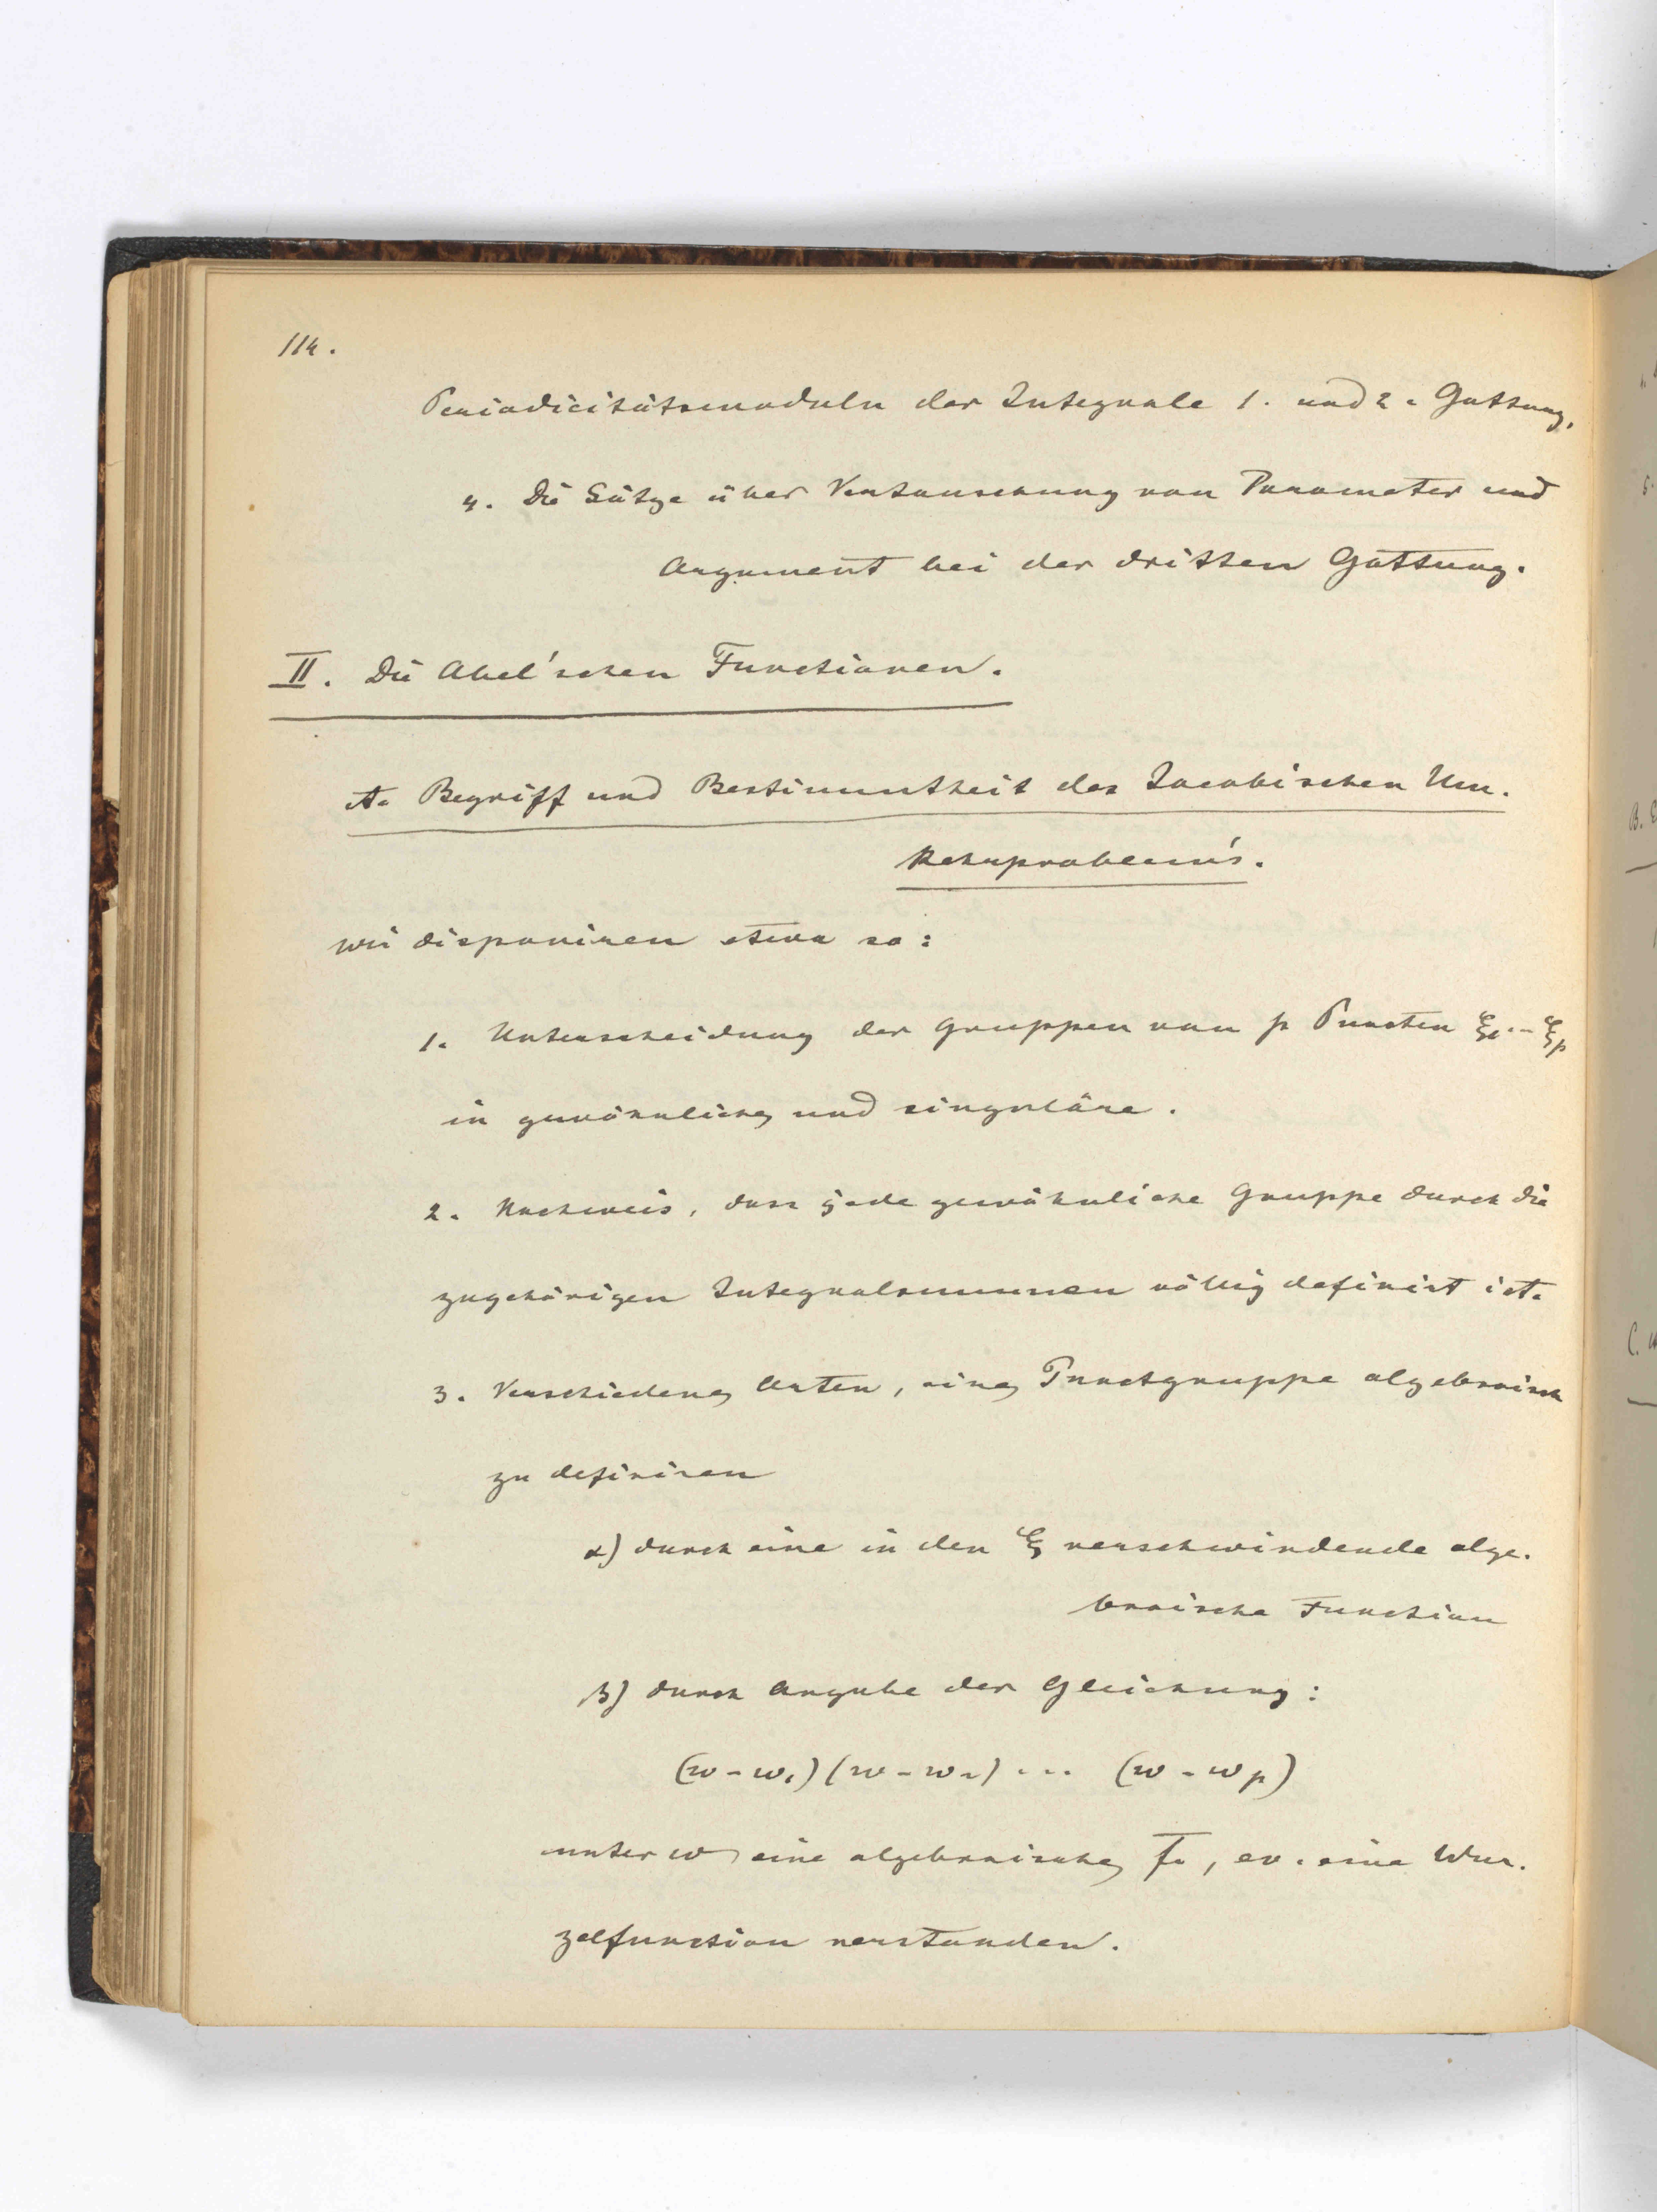 114.
Periodicitätsmoduln der Integrale 1. und 2. Gattung,
4. Die Sätze über Vertauschung von Parameter und
Argument bei der dritten Gattung.
II. Die Abel'schen Functionen.
A. Begriff und Bestimmtheit des Jacobischen Um-
kehrproblem's.
Wir disponiren etwa so:
1. Unterscheidung der Gruppen von p Puncten ξ₁...ξₚ
in gewöhnliche und singuläre.
2. Nachweis, dass jede gewöhnliche Gruppe durch die
zugehörigen Integralsummen völlig definirt ist.
3. Verschiedene Arten, eine Punctgruppe algebraisch
zu definiren
α) durch eine in den ξ verschwindende alge-
braische Function
β) durch Angabe der Gleichung:
(w-w₁)(w-w₂) ... (w-wₚ)
unter w eine algebraische F., ev. eine Wur-
zelfunction verstanden.
B.
C.